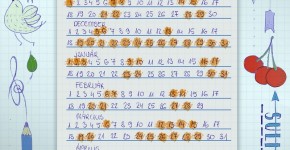 18 19 20 21 22 23 24 25 26 27 28 29 30
DECEMBER
1 2 3 4 5 6 7 8 9 10 11 12 13 14 15 16 17
18 19 20 21 22 23 24 25 26 27 28 29 30 31
JANUÁR
1 2 3 4 5 6 7 8 9 10 11 12 13 14 15 16 17
18 19 20 21 22 23 24 25 26 27 28 29 30 31
FEBRUÁR
1 2 3 4 5 6 7 8 9 10 11 12 13 14 15 16 17
18 19 20 21 22 23 24 25 26 27 28
MÁRCIUS
1 2 3 4 5 6 7 8 9 10 11 12 13 14 15 16 17
18 19 20 21 22 23 24 25 26 27 28 29 30 31